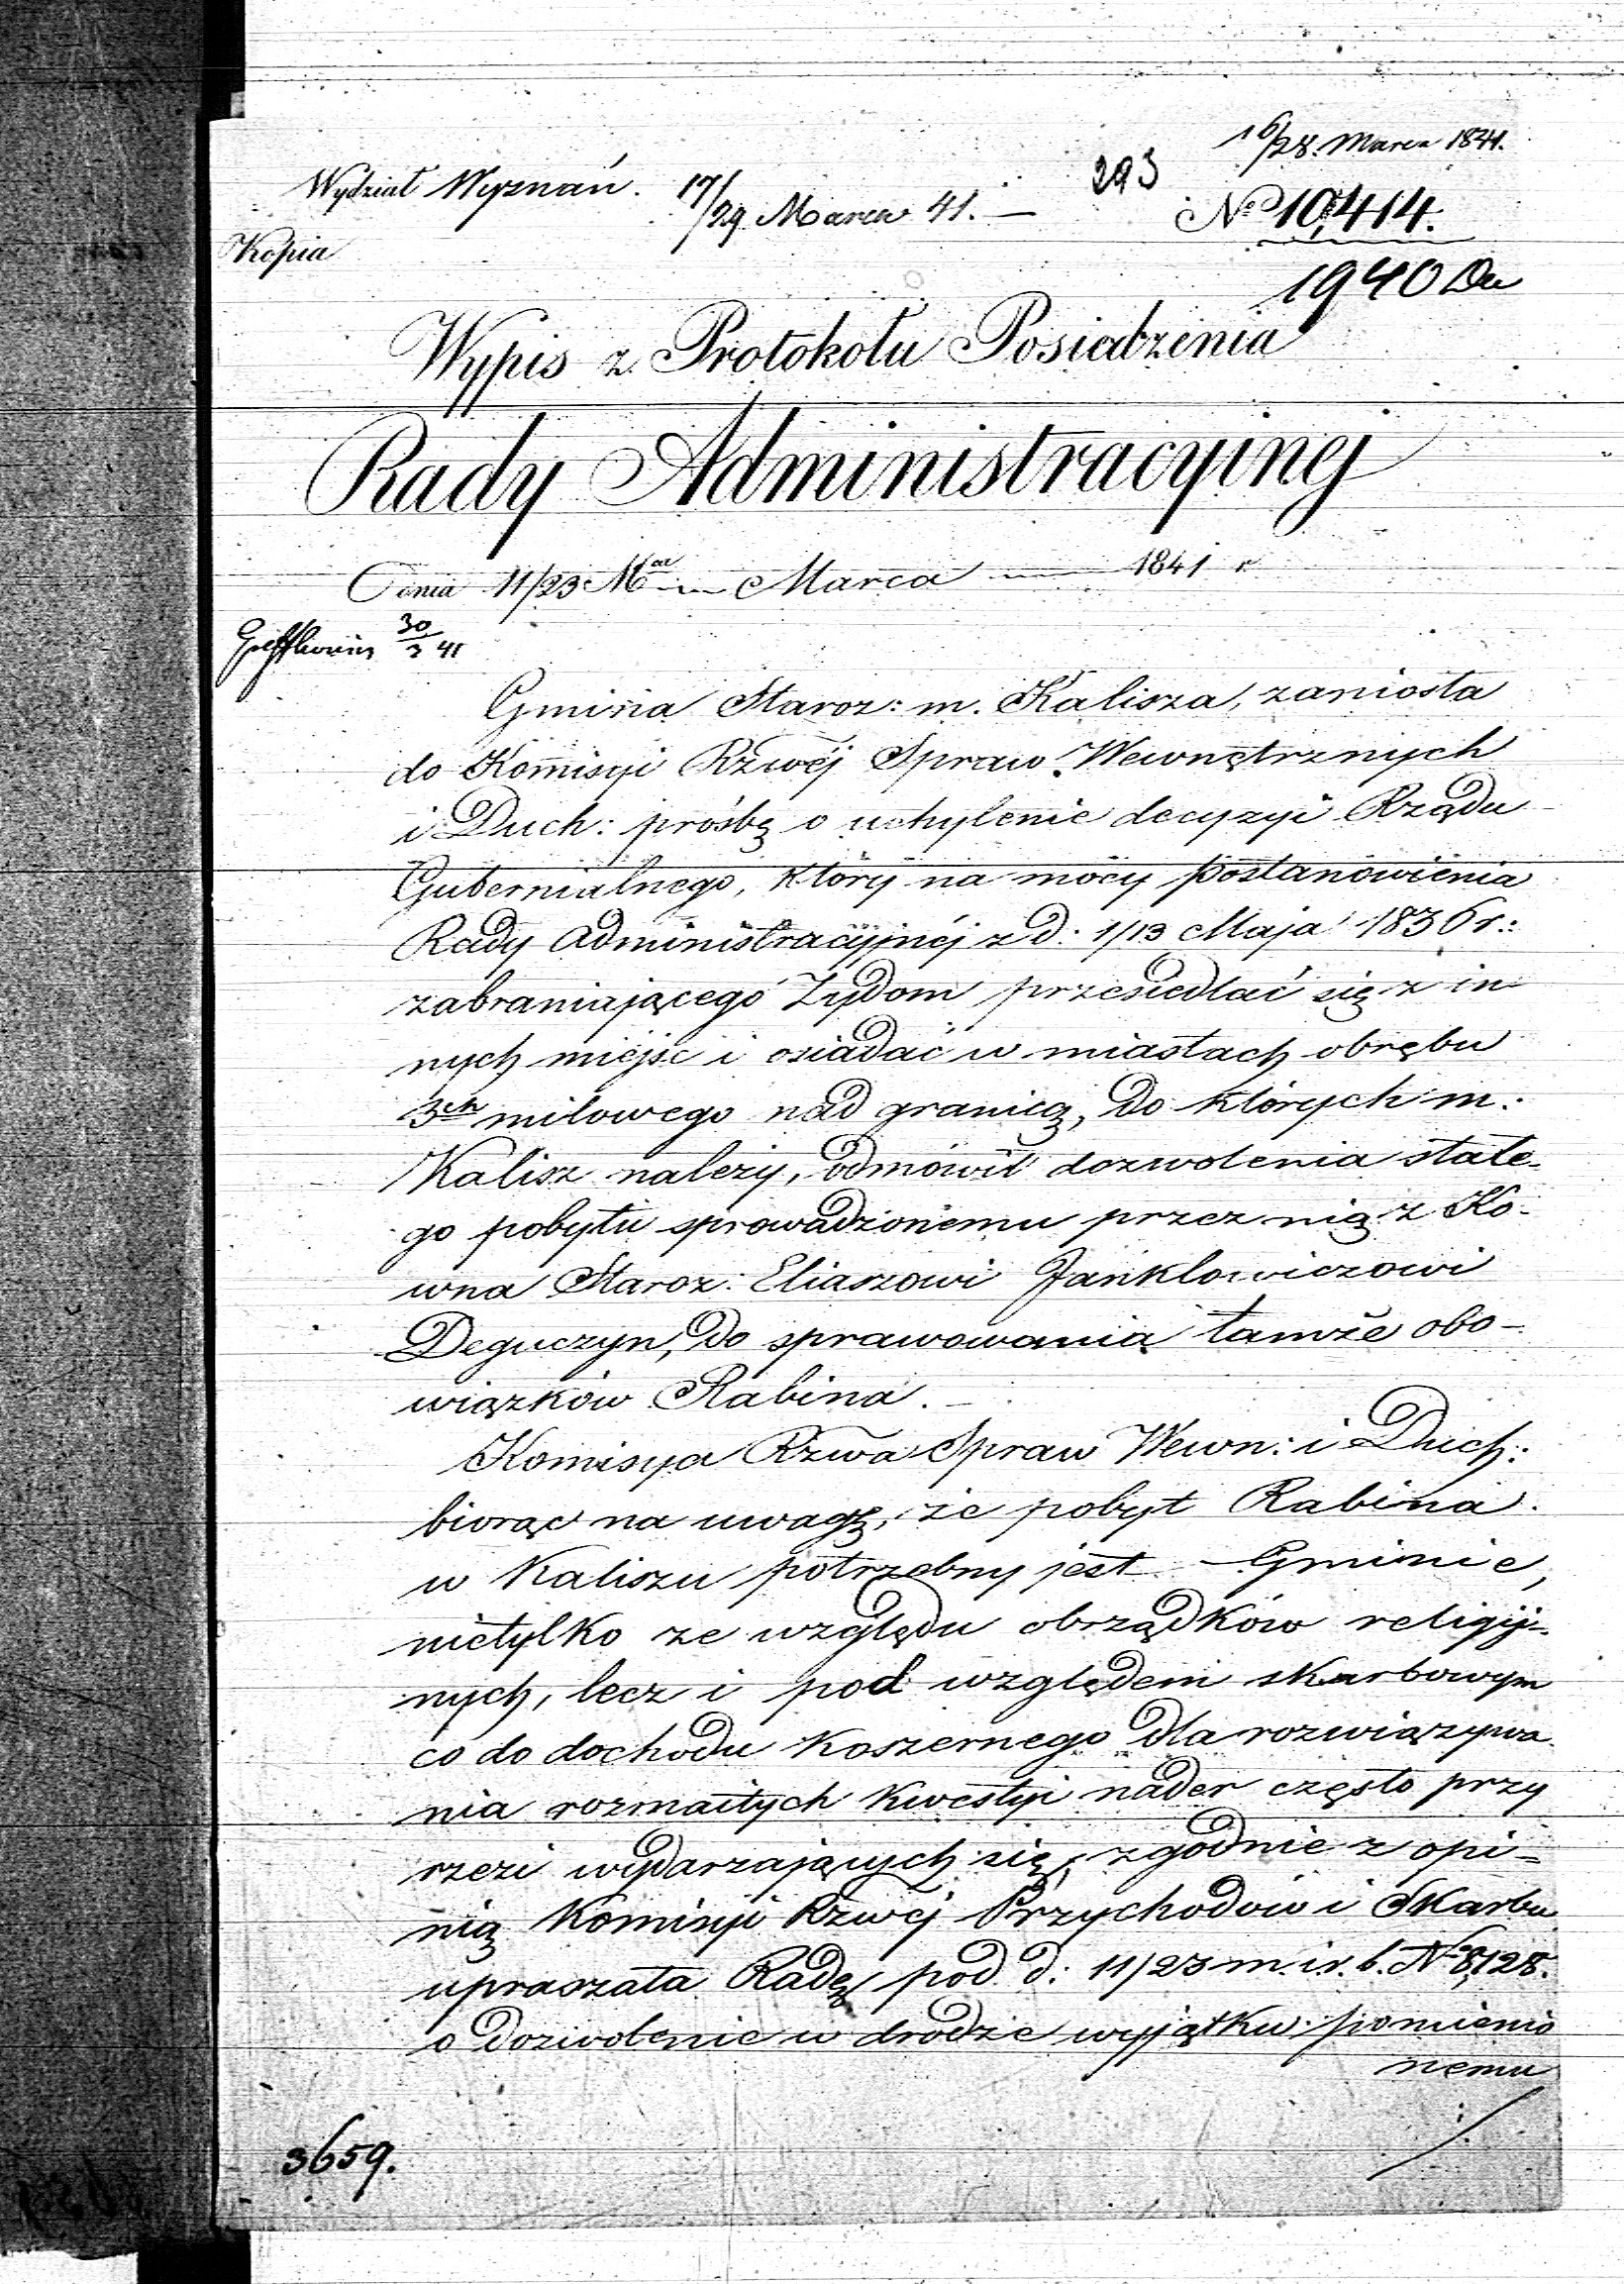 16/28. Marca 1841.
Wydział Wyznań. 17/29 Marca 41. — 293
No 10,414.
Kopia
1940 Du
Wypis z Protokołu Posiedzenia
Rady Administracyjnej
Dnia 11/23 Marca 1841 r
30/3 41
Gmina Staroz: m. Kalisza, zaniosła
do Komisyi Rzwéj Spraw Wewnętrznych
i Duch: prośbę o uchylenie decyzyi Rządu
Gubernialnego, który na mocy postanowienia
Rady Administracyjnéj z d: 1/13 Maja 1836 r:
zabraniającego Żydom przesiedlać się z in-
nych miejsc i osiadać w miastach obrębu
3ch milowego nad granicą, do których m:
Kalisz należy, odmówił dozwolenia stałe-
go pobytu sprowadzonemu przez nią z Ko-
wna Staroz: Eliaszowi Janklowiczowi
Deguczyn, do sprawowania tamże obo-
wiązków Rabina. —
Komisya Rzwa Spraw Wewn: i Duch:
biorąc na uwagę, że pobyt Rabina
w Kaliszu potrzebny jest Gminie,
nietylko ze względu obrządków religij-
nych, lecz i pod względem skarbowym
co do dochodu koszernego dla rozwiązywa-
nia rozmaitych kwestyi nader często przy
rzezi wydarzających się, zgodnie z opi-
nią Komisyi Rzwéj Przychodów i Skarbu
upraszała Radę pod d: 11/23 m. i r. b. No 8,128.
o dozwolenie w drodze wyjątku pomienio
nemu
3659.